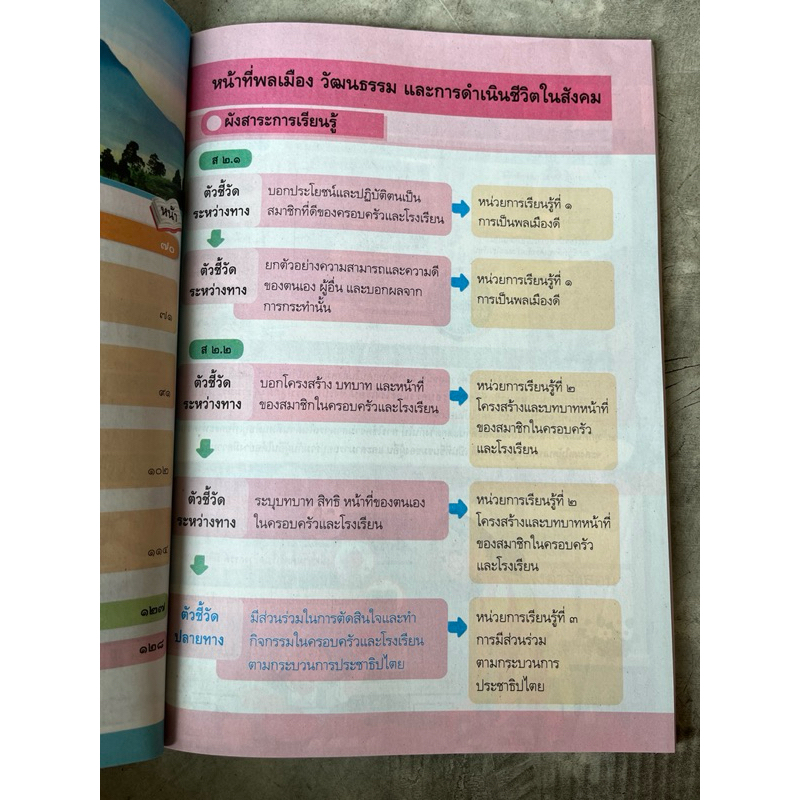 หน้า
๗๐
๗๑
๙๑
๑๐๒
๑๑๔
๑๒๗
๑๒๘
หน้าที่พลเมือง วัฒนธรรม และการดำเนินชีวิตในสังคม
ผังสาระการเรียนรู้
ส ๒.๑
ตัวชี้วัด
ระหว่างทาง
บอกประโยชน์และปฏิบัติตนเป็น
สมาชิกที่ดีของครอบครัวและโรงเรียน
หน่วยการเรียนรู้ที่ ๑
การเป็นพลเมืองดี
ตัวชี้วัด
ระหว่างทาง
ยกตัวอย่างความสามารถและความดี
ของตนเอง ผู้อื่น และบอกผลจาก
การกระทำนั้น
หน่วยการเรียนรู้ที่ ๑
การเป็นพลเมืองดี
ส ๒.๒
ตัวชี้วัด
ระหว่างทาง
บอกโครงสร้าง บทบาท และหน้าที่
ของสมาชิกในครอบครัวและโรงเรียน
หน่วยการเรียนรู้ที่ ๒
โครงสร้างและบทบาทหน้าที่
ของสมาชิกในครอบครัว
และโรงเรียน
ตัวชี้วัด
ระหว่างทาง
ระบุบทบาท สิทธิ หน้าที่ของตนเอง
ในครอบครัวและโรงเรียน
หน่วยการเรียนรู้ที่ ๒
โครงสร้างและบทบาทหน้าที่
ของสมาชิกในครอบครัว
และโรงเรียน
ตัวชี้วัด
ปลายทาง
มีส่วนร่วมในการตัดสินใจและทำ
กิจกรรมในครอบครัวและโรงเรียน
ตามกระบวนการประชาธิปไตย
หน่วยการเรียนรู้ที่ ๓
การมีส่วนร่วม
ตามกระบวนการ
ประชาธิปไตย